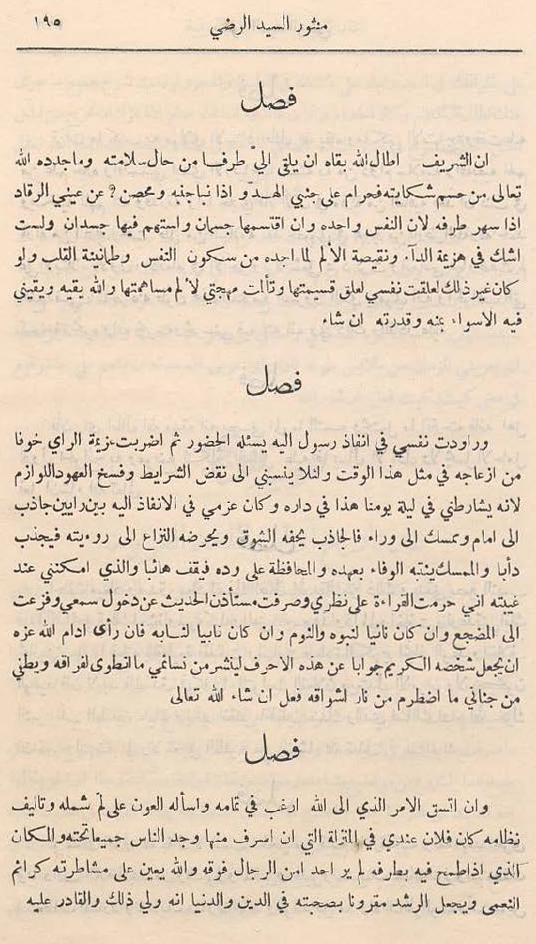 منثور السيد الرضي ١٩٥
فصل
ان الشريف اطال الله بقاه ان يلقي اليّ طرفا من حال سلامته وماجدده الله
تعالى من حسم شكايته فحرام على جنبي الهدوّ اذا نبا جنبه ومحصن? عن عيني الرقاد
اذا سهر طرفه لان النفس واحده وان اقتسمها جسمان واستهم فيها جسدان ولست
اشك في هزيمة الدآء ونقيصة الألم لما اجده من سكون النفس وطمانينة القلب ولو
كان غير ذلك لعلقت نفسي لعلق قسيمتها وتألمت مهجتي لألم مساهمتها والله يقيه ويقيني
فيه الاسواء بمنه وقدرته ان شاء
فصل
وراودت نفسي في انفاذ رسول اليه يسئله الحضور ثم اضربت عزيمة الراي خوفا
من ازعاجه في مثل هذا الوقت ولئلا ينسبني الى نقض الشرايط وفسخ العهود اللوازم
لانه يشارطني في ليلة يومنا هذا في داره وكان عزمي في الانفاذ اليه بين رايين جاذب
الى امام وممسك الى وراء فالجاذب يحفه الشوق ويحرضه النزاع الى روءيته فيجذب
دأبا والممسك يثبته الوفاء بعهده والمحافظة على وده فيقف هائبا والذي امكنني عند
غيبته اني حرمت القراءة على نظري وصرفت مستأذن الحديث عن دخول سمعي وفزعت
الى المضجع وان كان نائيا لنبوه والنوم وان كان نابيا لنابه فان رأى ادام الله عزه
ان يجعل شخصه الكريم جوابا عن هذه الاحرف لينشر من نسائمي ما انطوى لفراقه ويطني
من جناني ما اضطرم من نار اشواقه فعل ان شاء الله تعالى
فصل
وان اتسق الامر الذي الى الله ارغب في تمامه واسأله العون على لمّ شمله وتاليف
نظامه كان فلان عندي في المنزلة التي ان اسرف منها وجد الناس جميعا تحته والمكان
الذي اذا طمح فيه بطرفه لم ير احد امن الرجال فوقه والله يعين على مشاطرته كرائم
النعمى ويجعل الرشد مقرونا بصحبته في الدين والدنيا انه ولي ذلك والقادر عليه